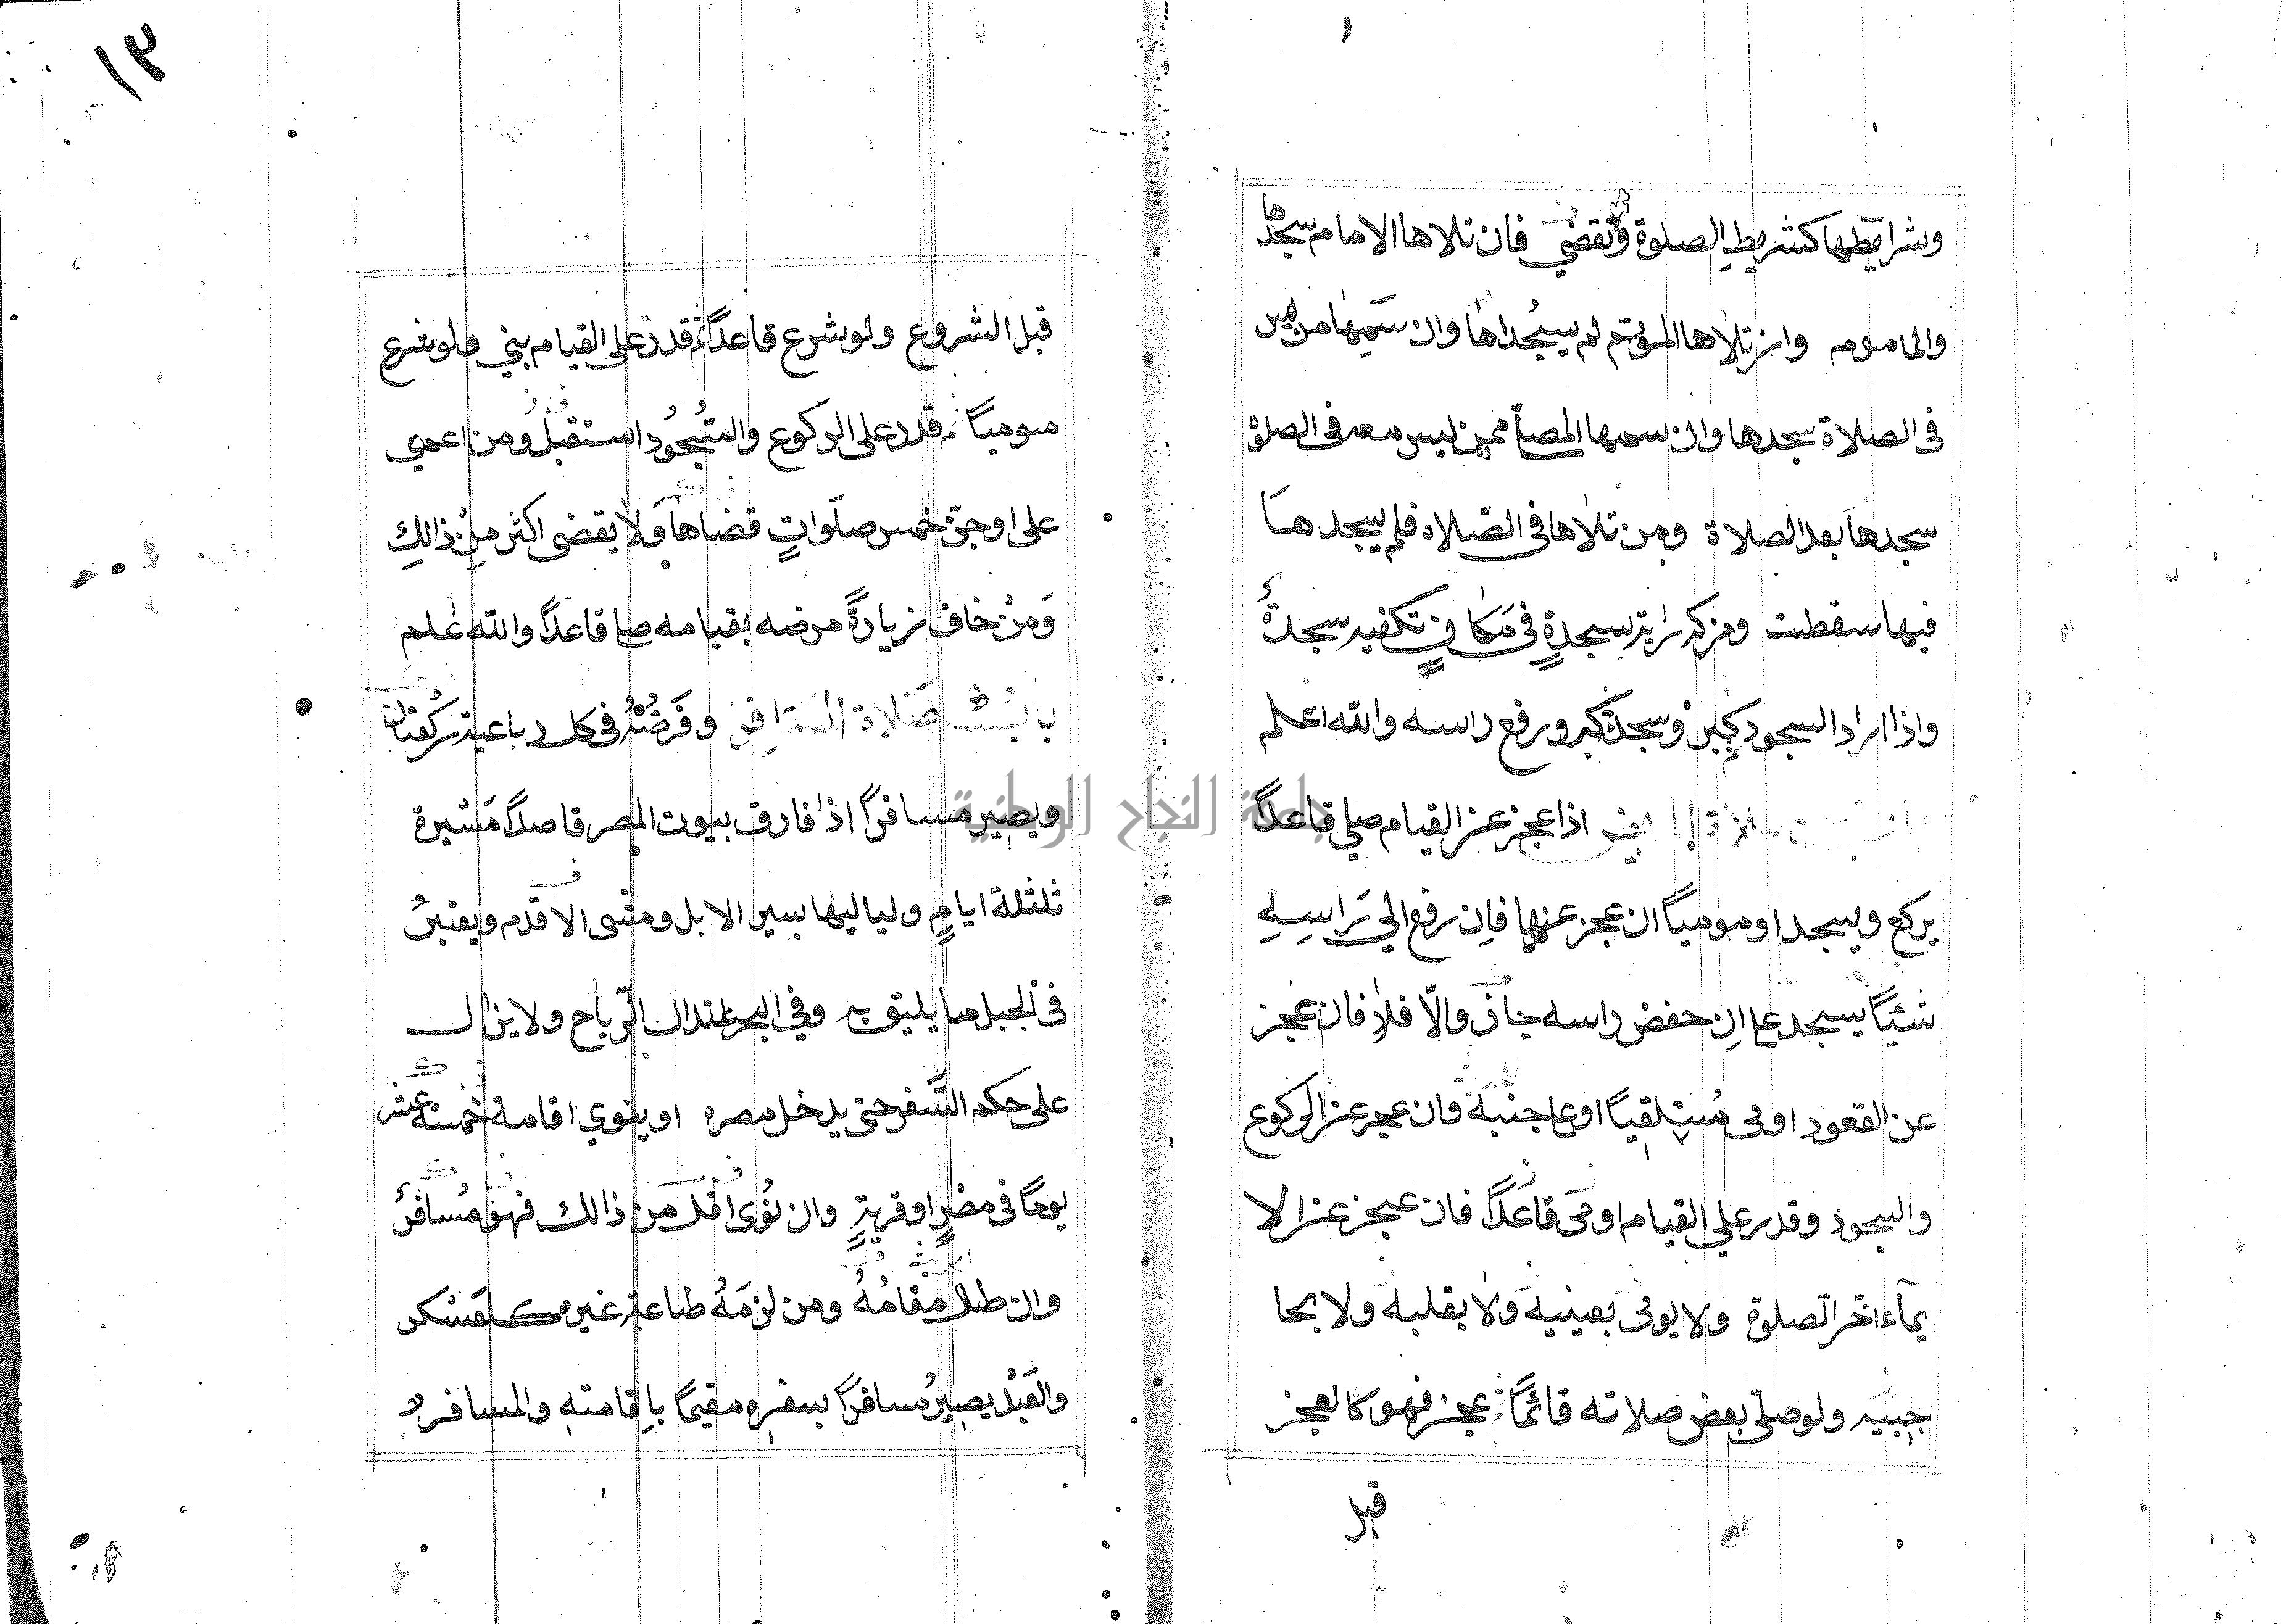 وشرايطها كشريط الصلوة وتقضي فان تلاها الامام سجدها
والماموم وان تلاها الموتم لم يسجداها وان سمعها من ليس
فى الصلاة سجدها وان سمعها المصلّ ممن ليس معه فى الصلوة
سجدها بعد الصلاة ومن تلاها فى الصّلاة فلم يسجدها
فيها سقطت ومن كرر اية سجدةٍ فى مكانٍ تكفيه سجدةٌ
واذا اراد السجود كبر وسجد ثم كبر ورفع راسه والله اعلم
اذا عجز عن القيام صلي قاعداً
يركع ويسجد او موميًا ان عجز عنها فان رفع الي راسِهِ
شيًا يسجد على ان خفض راسه جاز والّا فلا فان عجز
عن القعود اومى مستلقيًا او على جنبه وان عجز عن الركوع
والسجود وقدر علي القيام اومى قاعدًا فان عجز عن الا
يمآء اخّر الصّلوة ولا يومى بعينيه ولا بقلبه ولا بحا
جبيه ولو صلّى بعض صلاته قائمًا ثم عجز فهو كالعجز
قبل
١٣
قبل الشروع ولو شرع قاعدًا ثم قدر على القيام بني ولو شرع
موميًا ثم قدر على الركوع والسُّجُود استقبل ومن اغمي
على او جنّ خمس صلوات قضاها ولا يقضى اكثر من ذالك
وَمن خاف زيادة مرضه بقيامه صلى قاعدًا والله علم
باب صلاة المسافر وفَرضُهُ فى كل رباعية ركعتان
ويصير مسافرًا اذا فارق بيوت المصر قاصدًا مَسيرة
ثلثلة ايامٍ ولياليها بسير الابل ومشى الاقدم ويعتبرُ
فى الجبل ما يليق به وفي البحر اعتدال الرّياح ولا يزال
على حكم السَّفر حتى يدخل مصره او ينوي اقامة خمسة عشر
يومًا فى مصْرٍ او قريةٍ وان نوى اقل من ذالك فهو مُسافرٌ
وان طال مقامُهُ ومن لزمَهُ طاعة غيره كعسكر
والعَبْد يصير مسافرًا بسفره مقيمًا باقامته والمسافر
جامعة النجاح الوطنية